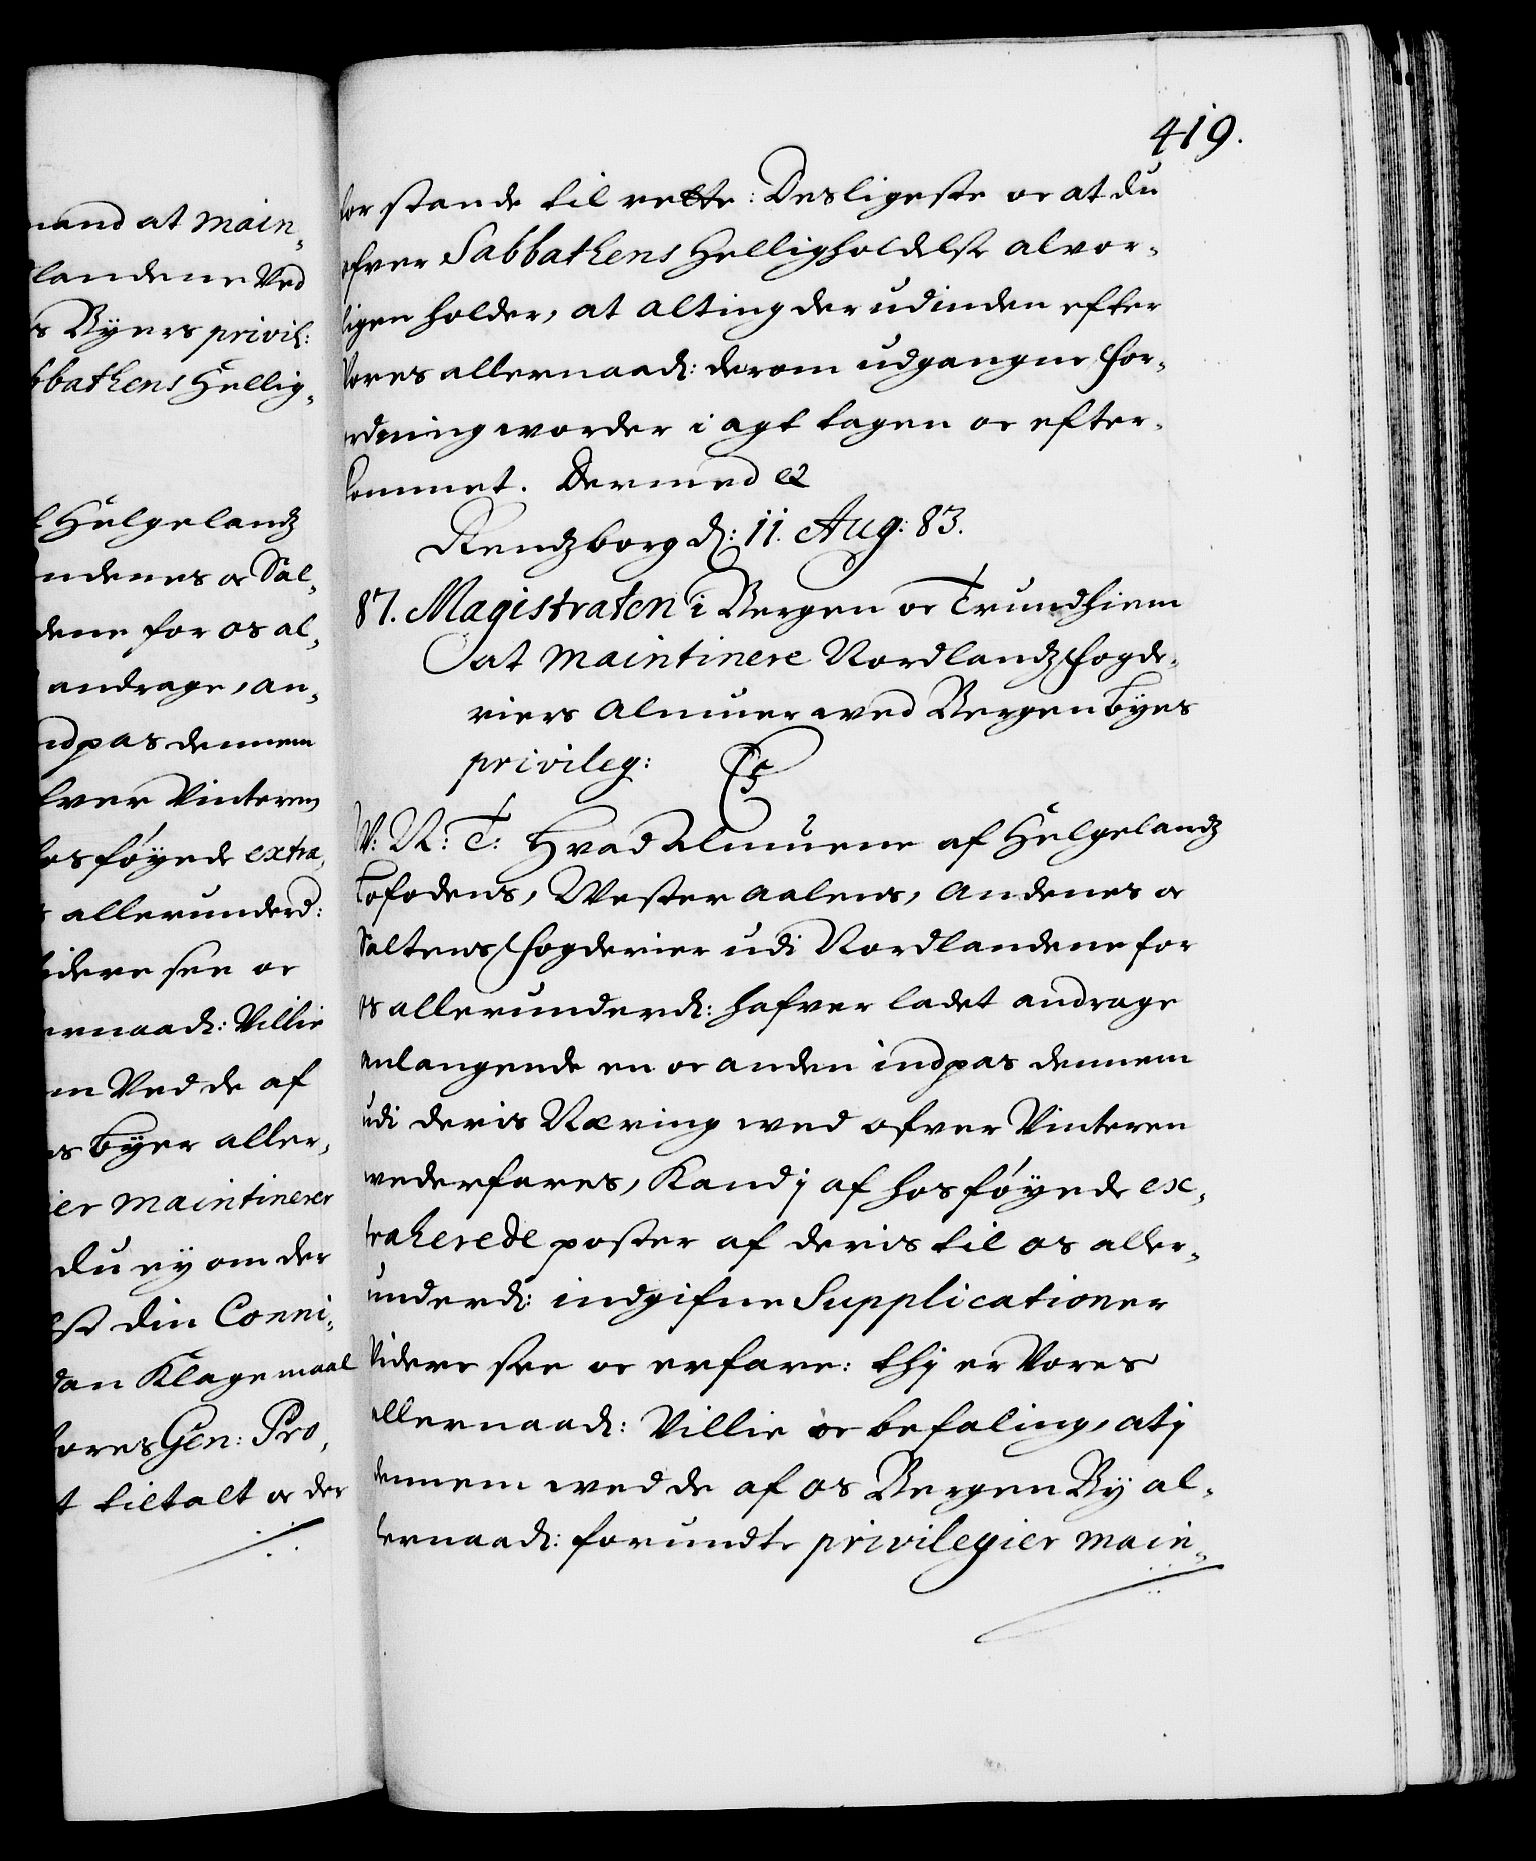 mand at main-
landene Ved
s Byers privil:
bbathens Hellig-
Helgelandz
ndenes oc Sal-
dene for os al-
andrage, an-
indpas dennem
fver Vinteren
hosføyede extra-
allerunderd:
videre see oc
ernaad: Villie
Ved de af
s byer aller-
ier maintinerer
du ey om der
din Conni-
dan Klagemaal
Vores Gen: Pro-
t tiltalt oc der
419.
for stande til rette: Desligeste oc at du
ofver Sabbathens Helligholdelse alvor-
ligen holder, at alting der udinden efter
Vores allernaad: derom udgangne For-
ordning worder i agt tagen oc efter-
kommet. Dermed etc
Rendzborg d: 11. Aug: 83.
87. Magistraten i Bergen oc Trundhiem
at maintinere Nordlandz Fogde-
riers Almuer wed Bergen byes
privileg:
W: N: T: Hvad Almuene af Helgelandz
Lofodens, Wester Aalens, Andenes oc
Saltens Fogderier udi Nordlandene for
os allerunderd: hafver ladet andrage
anlangende en oc anden indpas dennem
udi deris Næring wed ofver Vinteren
wederfares, Kand j af hosføyede ex-
traherede poster af deris til os aller-
underd: indgifne Supplicationer
Videre see oc erfare: thj er Vores
allernaad: Villie oc befaling, at j
dennem wed de af os Bergen By al-
lernaad: forundte privilegier main-